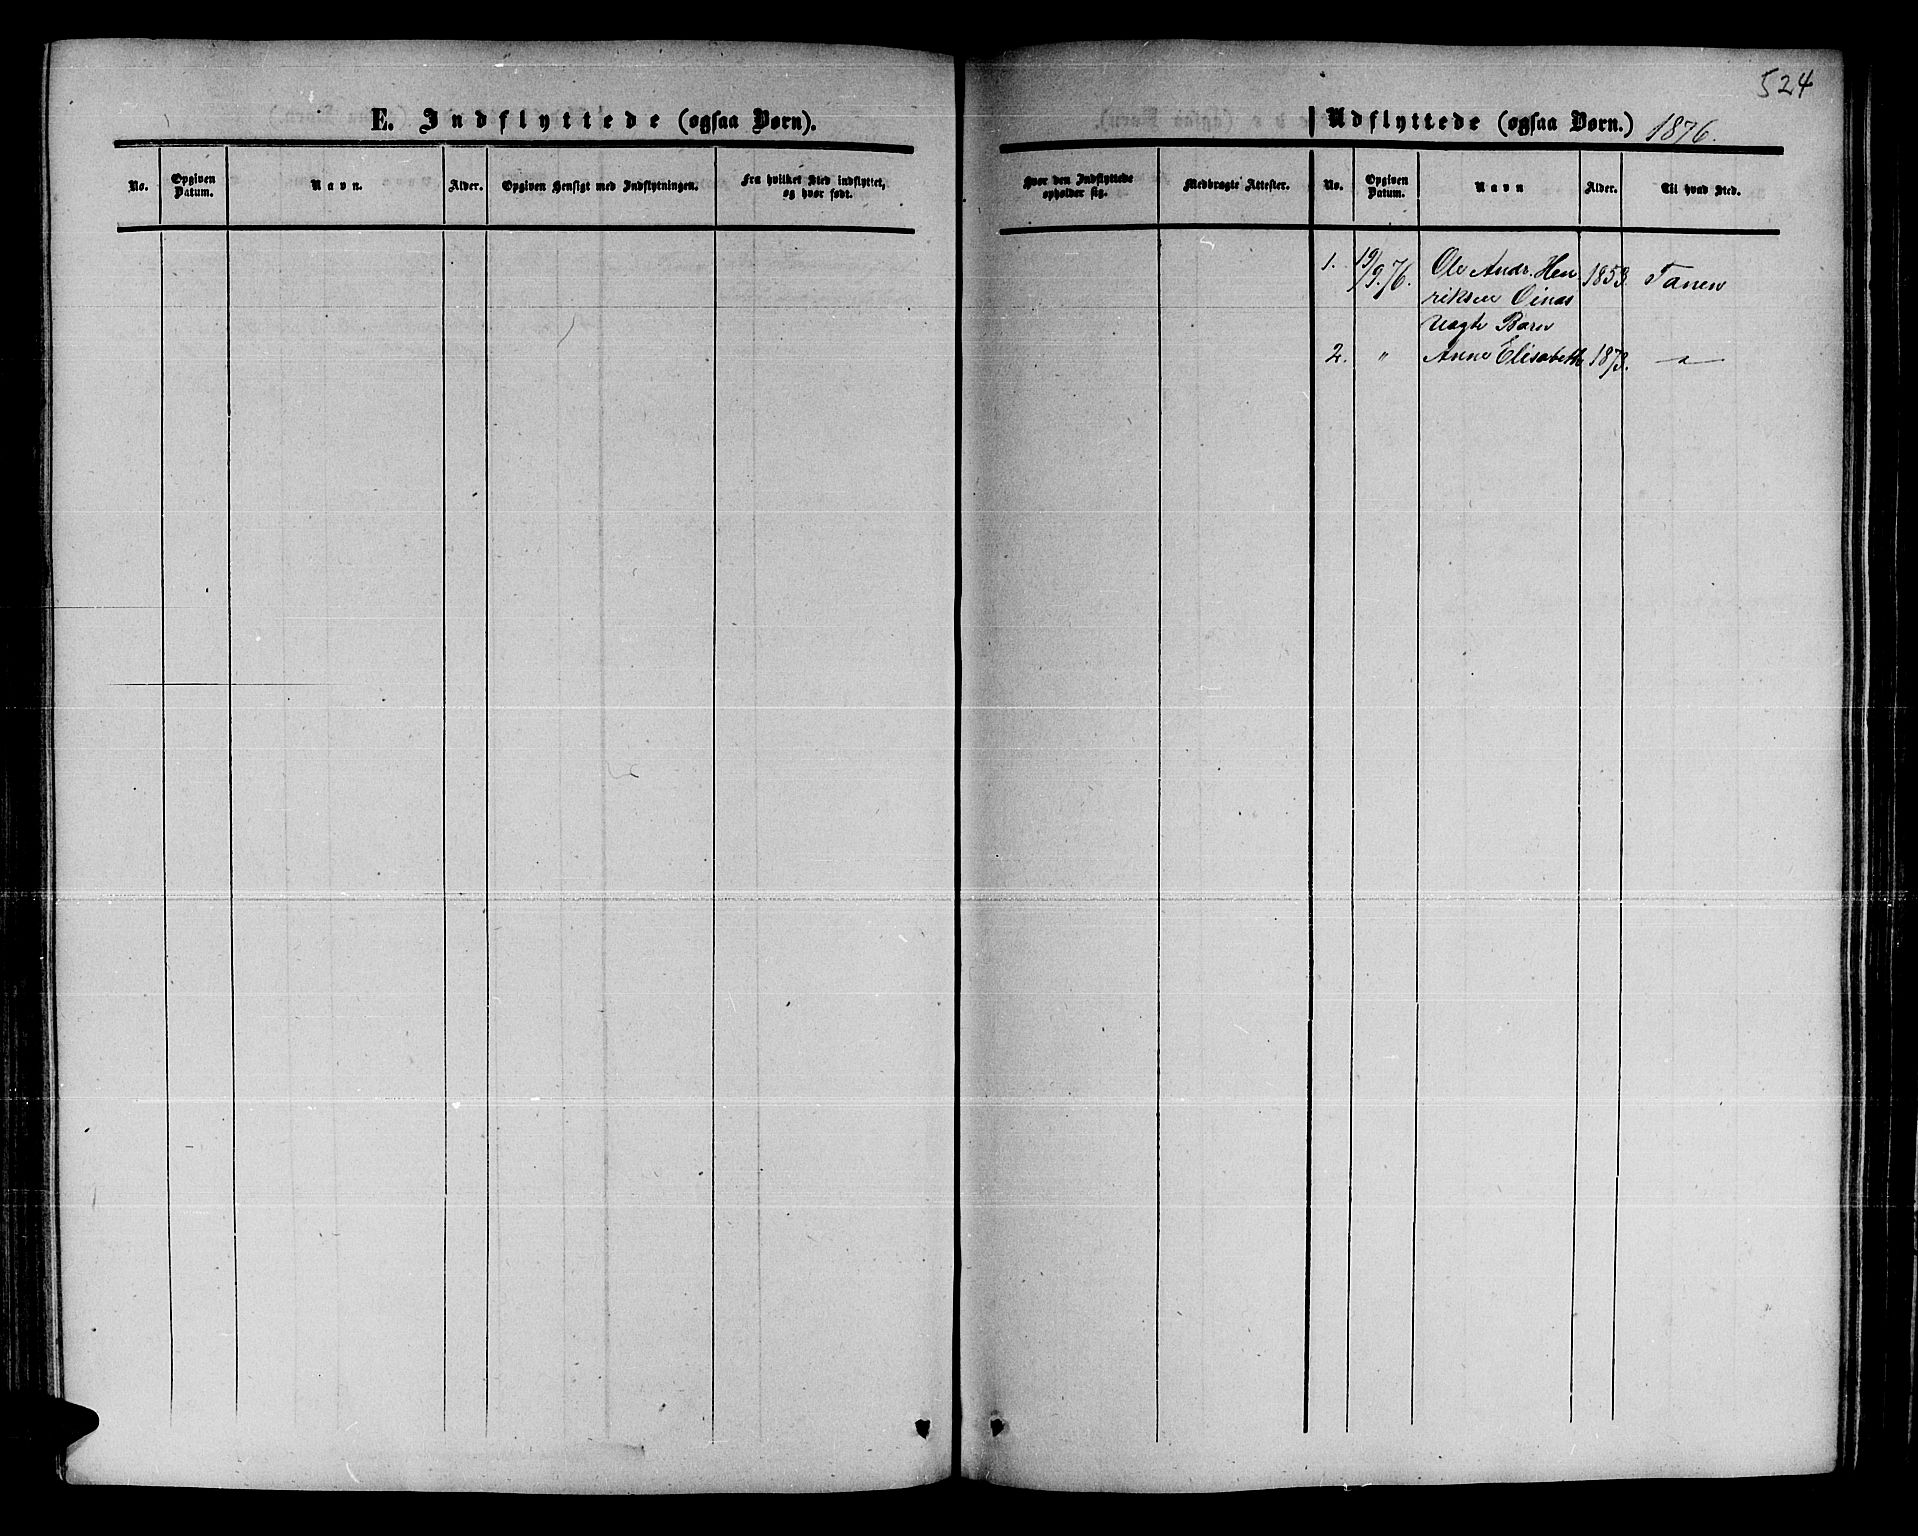 524
E. Indflyttede (ogsaa Børn).
Udflyttede (ogsaa Børn.) 1876.
No.
Opgiven Datum.
Navn.
Alder.
Opgiven Hensigt med Indflytningen.
Fra hvilket Sted indflyttet, og hvor født.
Hvor den Indflyttede opholder sig.
Medbragte Attester.
No.
Opgiven Datum.
Navn
Alder.
Til hvad Sted.
1. 19/9.76. Ole Andr. Hen 1853 Tanen
riksen Oinas
uægte Barn
2. " Anne Elisabeth 1873.